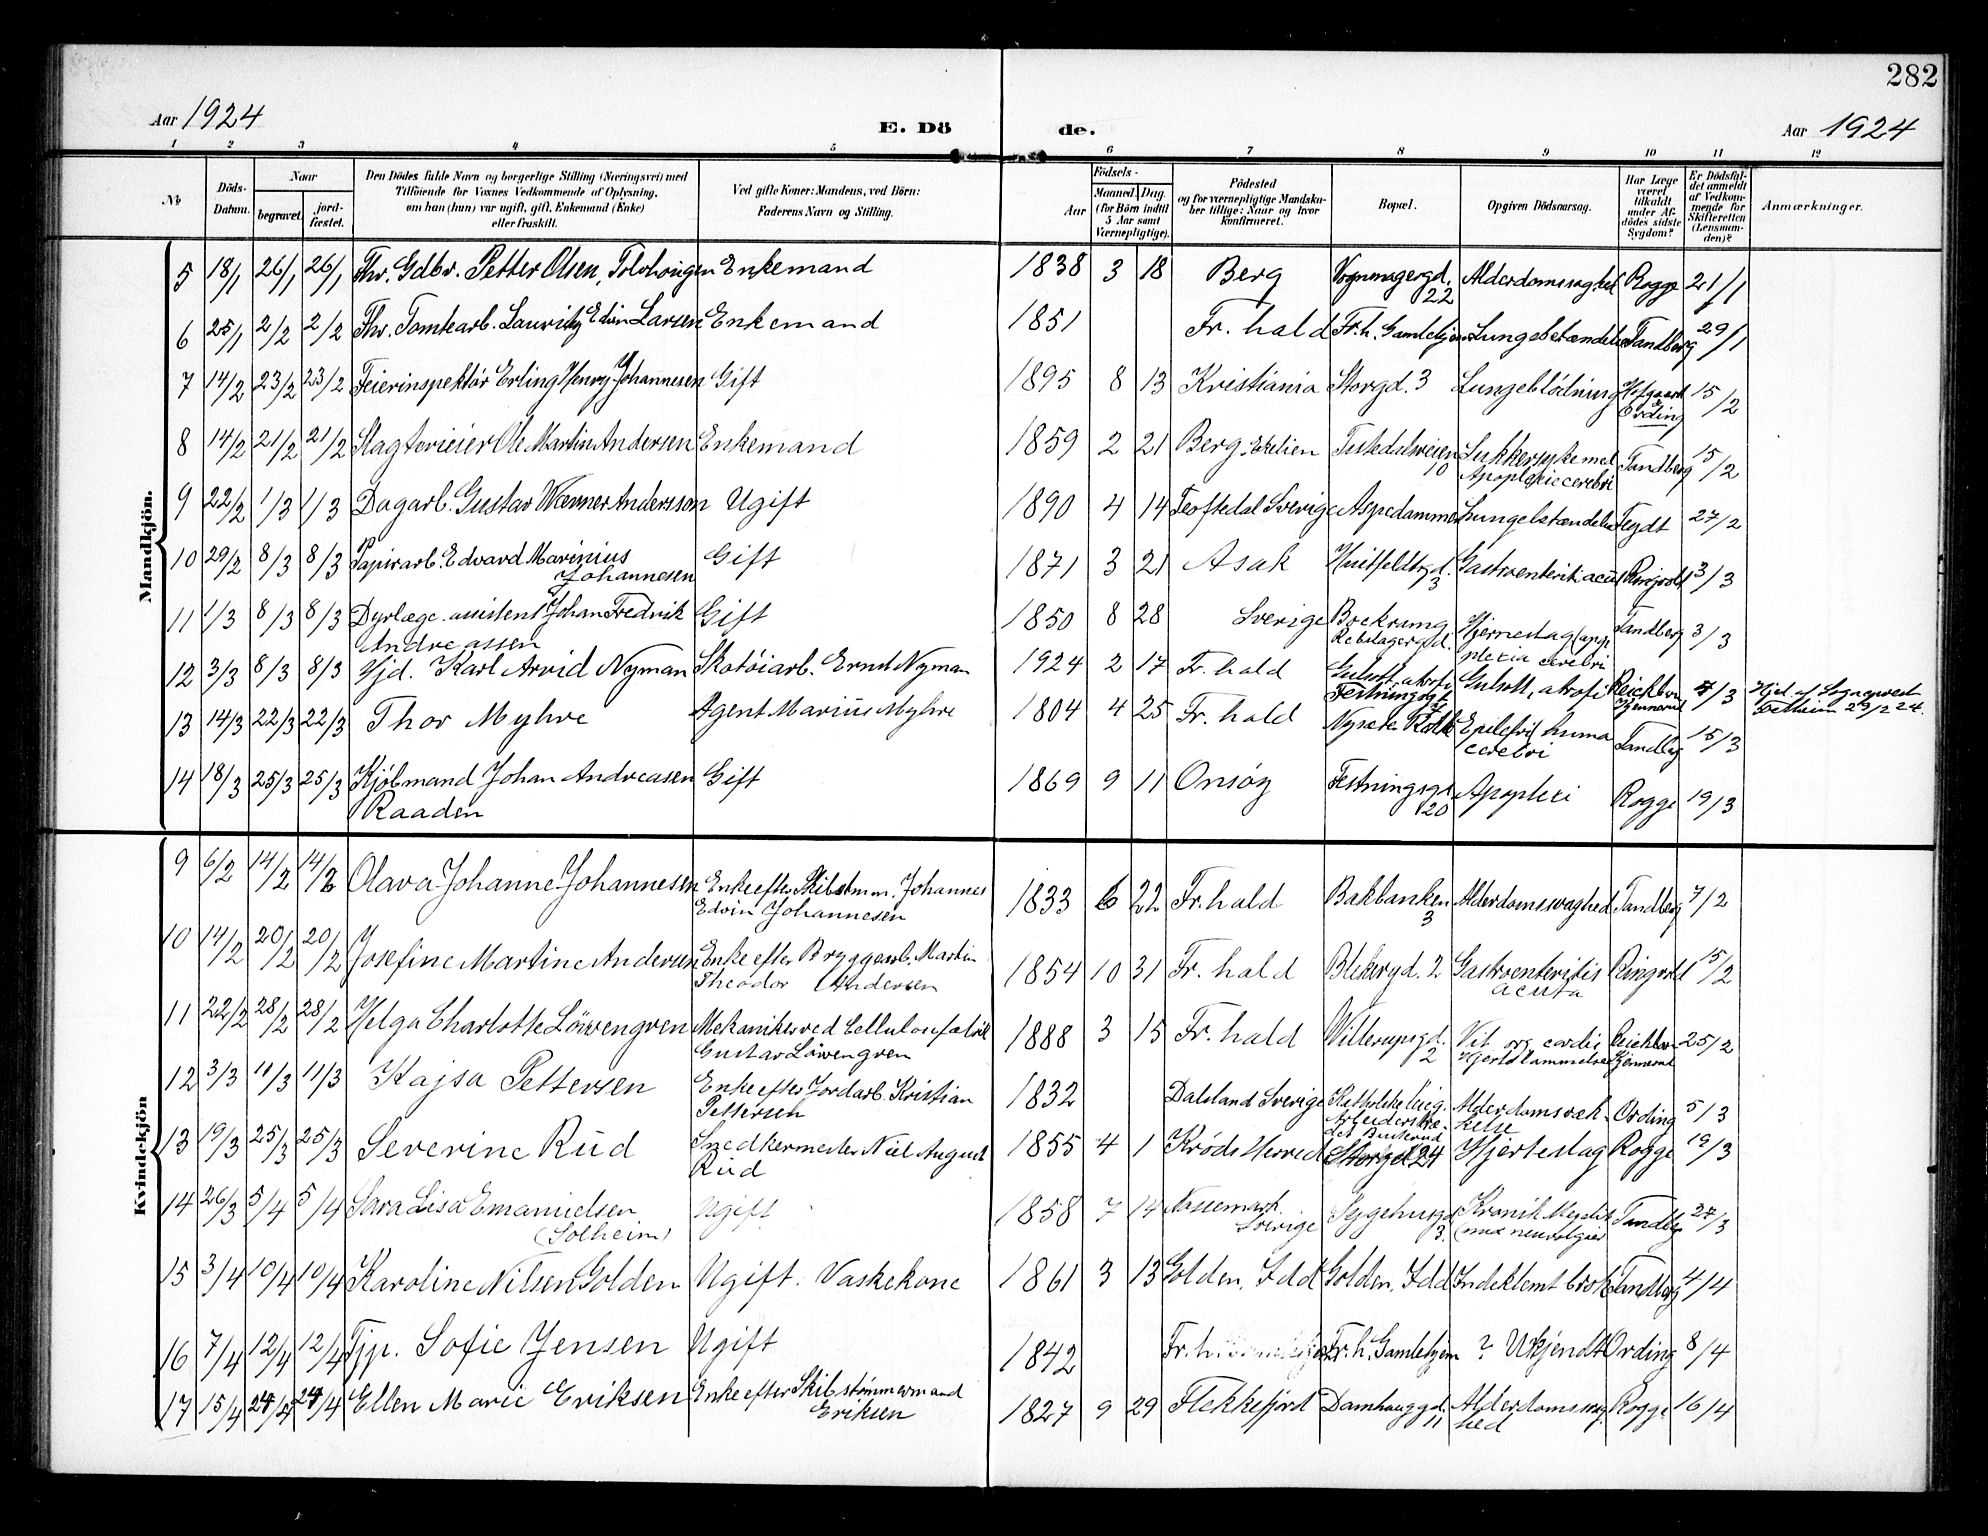 282
Aar 1924
E. Dö
de.
Aar 1924
1 2 3 4 5 6 7 8 9 10 11 12
No
Döds-Datum.
Naar
begravet.
jord-fæstet.
Den Dödes fulde Navn og borgerlige Stilling (Næringsvei) med
Tilföiende for Voxnes Vedkommende af Oplysning,
om han (hun) var ugift, gift, Enkemand (Enke)
eller fraskilt.
Ved gifte Koner: Mandens, ved Börn:
Faderens Navn og Stilling.
Födsels-
Aar
Maaned. Dag.
(for Börn indtil
5 Aar samt
Værnepligtige).
Födested
og for værnepligtige Mandska-
ber tillige: Naar og hvor
konfirmeret.
Bopæl.
Opgiven Dödsaarsag.
Har Læge
været
tilkaldt
under Af-
dödes sidste
Sygdom?
Er Dödsfal-
det anmeldt
af Vedkom-
mende for
Skifteretten
(Lensman-
den)?
Anmærkninger.
Mandkjön.
5 18/1 26/1 26/1 Fhv. Gdbr. Petter Olsen, Enkemand 1838 3 18 Berg Vognmagergd. 22 Alderdomssvaghed Rogge 21/1
6 25/1 2/2 2/2 Fhv. Tomtearb. Lauritz Edvin Larsen Enkemand 1851 Fr. hald Fr.h. Gamlehjem Lungebetændelse Tandberg 29/1
7 14/2 23/2 23/2 Feierinspektör Erling Henry Johannesen Gift 1895 8 13 Kristiania Storgd. 3 Lungeblödning Ording 15/2
8 14/2 21/2 21/2 Slagterieier Ole Martin Andersen Enkemand 1859 2 21 Berg. Tistedalsveien 10 Sukkersyke med Apoplexie cerebri Tandberg 15/2
9 22/2 1/3 1/3 Dagarb. Gustav Werner Andersson Ugift 1890 4 14 Sverige Aspedammen Lungebetændelse Feydt 27/2
10 29/2 8/3 8/3 Papirarb. Edvard Marinius Johannesen Gift 1871 3 21 Asak Huitfeldtgd. 3 Gastroenterit. acut Ringvold 3/3
11 1/3 8/3 8/3 Dyrlæge-assistent Johan Fredrik Andreassen Gift 1850 8 28 Sverige Rebslagergd. Hjerneslag (apoplexia cerebri Tandberg 3/3
12 3/3 8/3 8/3 Hjd. Karl Arvid Nyman Skotöiarb. Ernst Nyman 1924 2 17 Fr. hald Festningsgt. Gulsott, atrofi 4/3 Hjd. af Sogneprest 29/2 24.
13 14/3 22/3 22/3 Thor Myhre Agent Marius Myhre 1804 4 25 Fr. hald cerebri Tandberg 15/3
14 18/3 25/3 25/3 Kjöbmand Johan Andreasen Raaden Gift 1869 9 11 Onsöy Festningsgt. 20 Apoplexi Rogge 19/3
Kvindekjön
9 6/2 14/2 14/2 Olava Johanne Johannesen Enke efter Skibstmm. Johannes Edvin Johannesen 1833 6 22 Fr. hald Bakbanken 3 Alderdomssvaghed Tandberg 7/2
10 14/2 20/2 20/2 Josefine Martine Andersen Enke efter Bryggearb. Martin Theodor Andersen 1854 10 31 Fr. hald Blekergd. 2 Gastroenteritis acuta Ringvold 15/2
11 22/2 28/2 28/2 Helga Charlotte Löwengren Mekaniker ved Cellulosefabrik Gustav Löwengren 1888 3 15 Fr. hald Willerupsgd. 2 Vit. org cordis 25/2
12 3/3 11/3 11/3 Kajsa Pettersen Enke efter Jordarb. Kristian Pettersen 1832 Dalsland Sverige Alderdomssvækkelse Ording 5/3
13 19/3 25/3 25/3 Severine Rud Snedkermester Nils August Rud 1855 4 1 Kröds Herred Storgd. 24 Hjerteslag Rogge 19/3
14 26/3 5/4 5/4 Sara Lisa Emanuelsen (Solheim) Ugift 1858 7 14 Sverige Sygehusgd. 3. Kronik Tandberg 27/3
15 3/4 10/4 10/4 Karoline Nilsen Golden Ugift. Vaskekone 1861 3 13 Golden, Idd Golden, Idd Indeklemt brok Tandberg 4/4
16 7/4 12/4 12/4 Tjp. Sofie Jensen Ugift 1842 Fr.h. Fr.h. Gamlehjem ? Ukjendt Ording 8/4
17 15/4 24/4 24/4 Ellen Marie Eriksen Enke efter Skibstömmermand Eriksen 1827 9 29 Flekkefjord Damhauggd. 11 Alderdomssvaghed Rogge 16/4